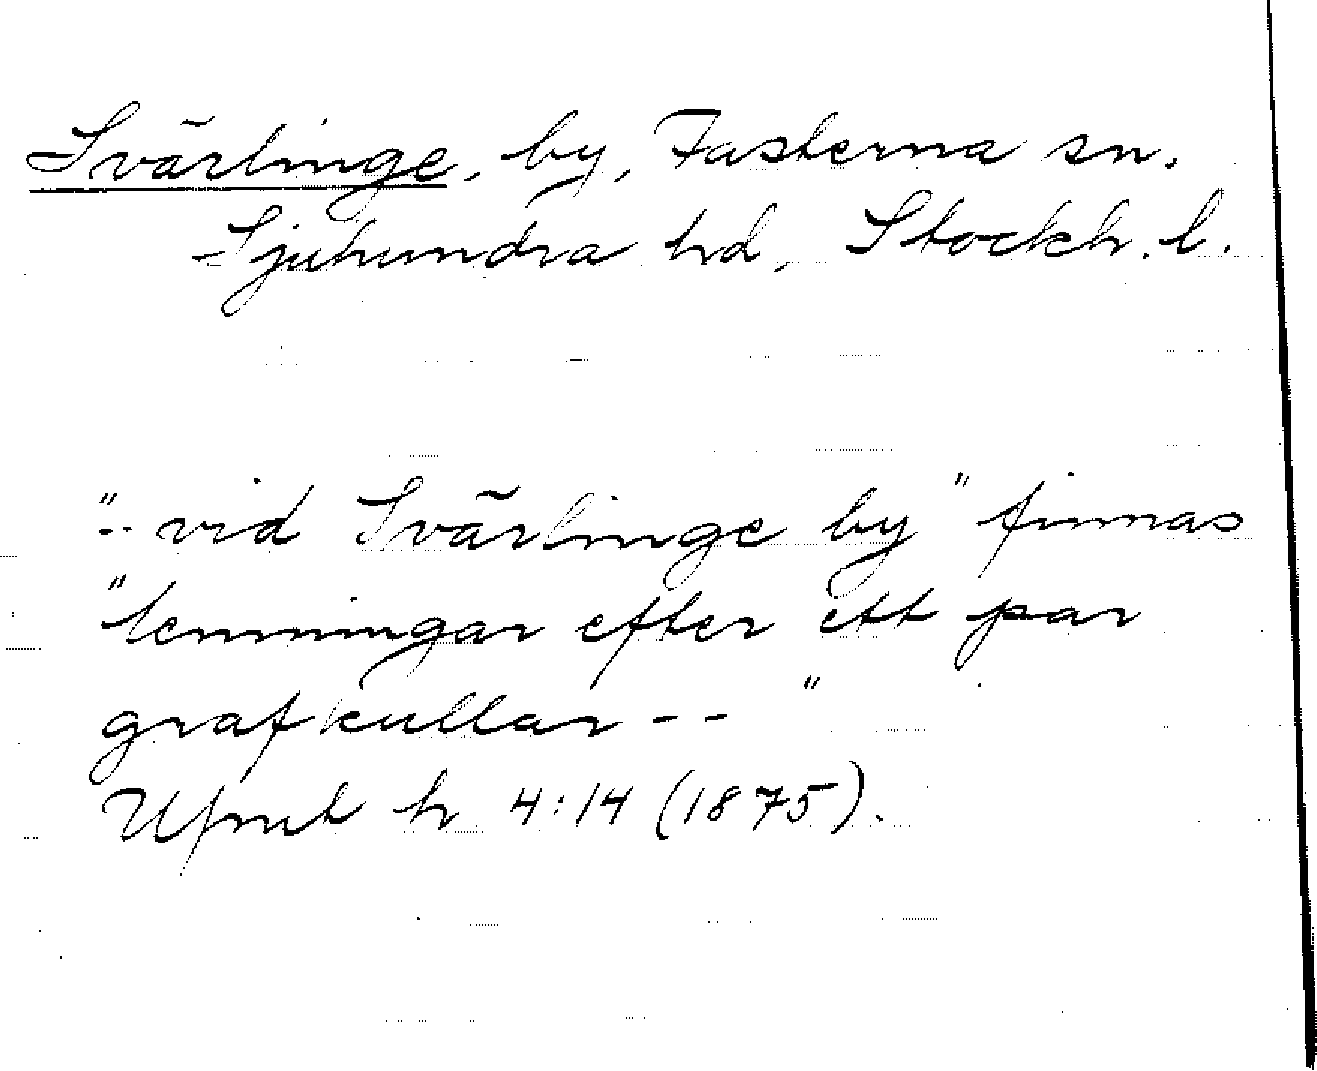 Svärlinge, by, Fasterna sn.
Sjuhundra hd, Stockh. l.
"-- vid Svärlinge by" finnas
"lemningar efter ett par
grafkullar -- "
Upmt h 4:14 (1875).